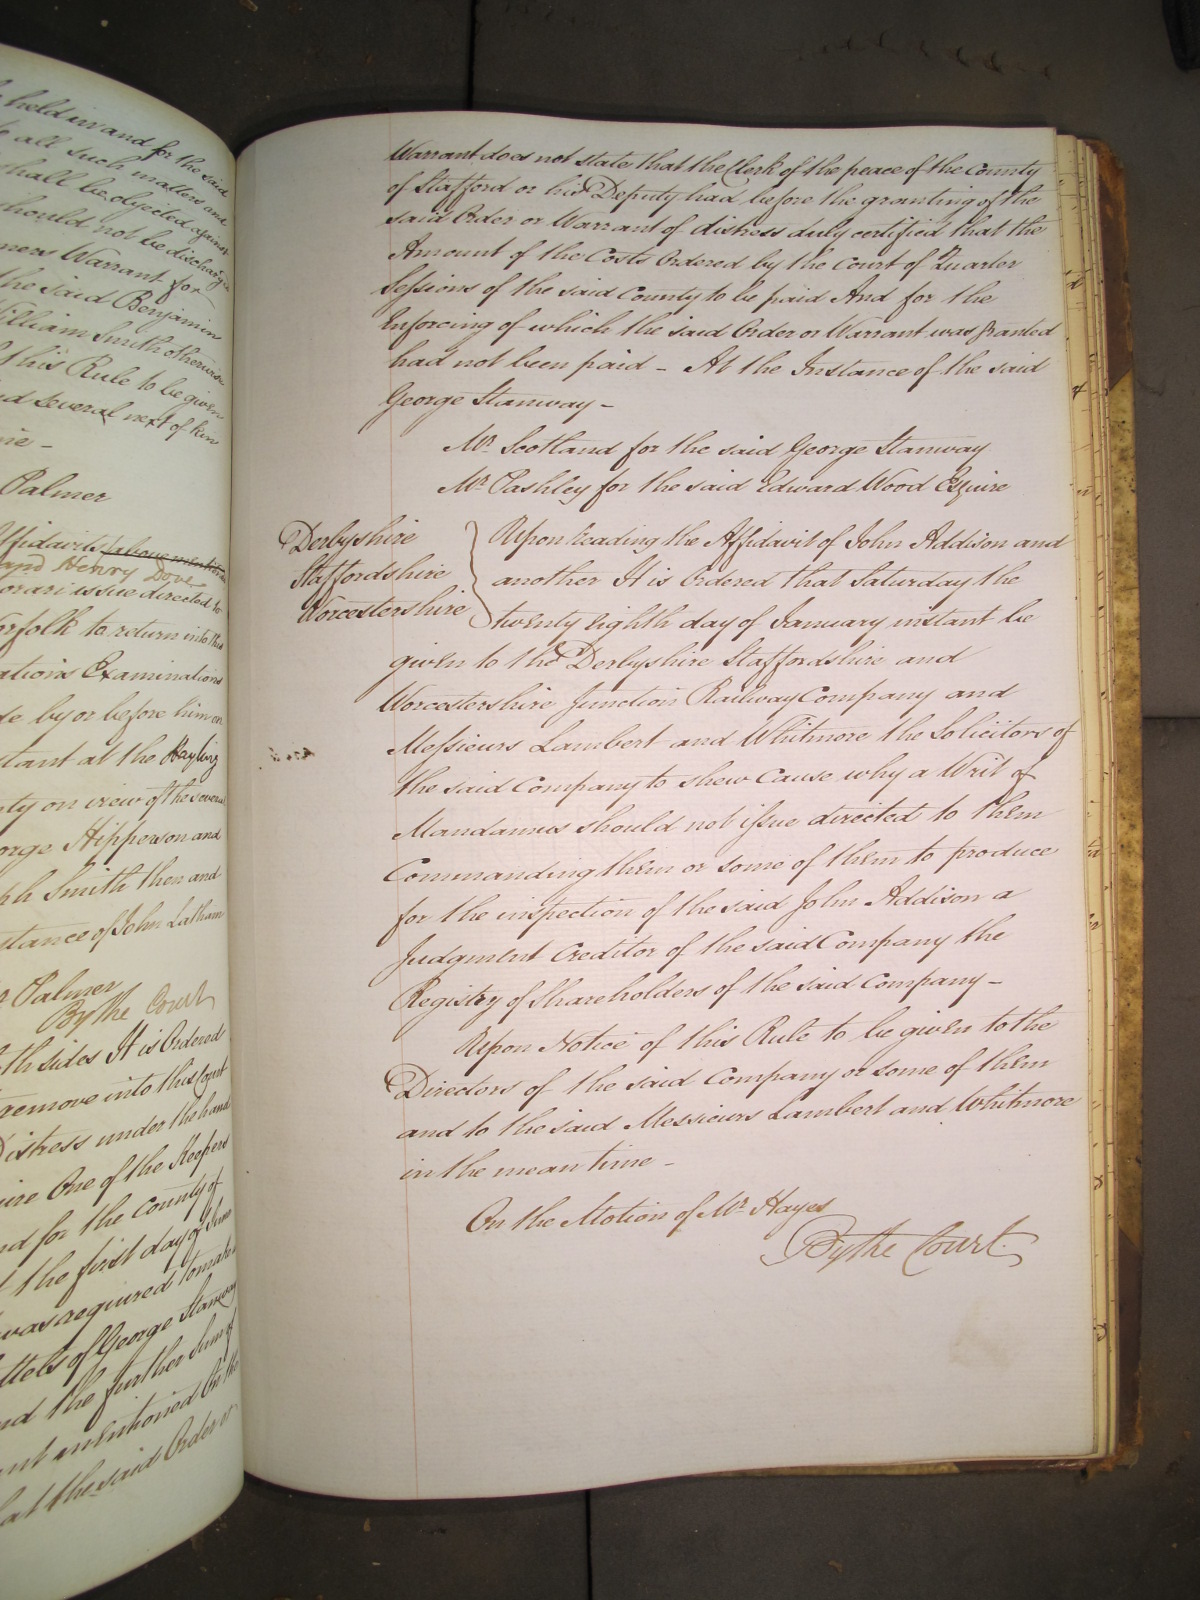 held in and for the said
all such matters and
shall be objected against
should not be discharged
Warrant for
the said Benjamin
William Smith otherwise
this Rule to be given
several next of kin
Palmer
Affidavits above mentioned
and Henry Dove
issue directed to
Norfolk to return into this
Examinations
by or before him on
at the
on view of the several
George Hipperson and
Smith then and
Instance of John Latham
Palmer
By the Court
both sides It is Ordered
remove into this Court
Distress under the hand
One of the Keepers
for the County of
the first day of
was required to make
of George Stamway
and the further Sum of
mentioned On the
that the said Order or
Warrant does not state that the Clerk of the peace of the County
of Stafford or his Deputy had before the granting of the
said Order or Warrant of distress duly certified that the
Amount of the Costs Ordered by the Court of Quarter
Sessions of the said County to be paid And for the
Enforcing of which the said Order or Warrant was granted
had not been paid - At the Instance of the said
George Stamway -
Mr Scotland for the said George Stamway
Mr Pashley for the said Edward Wood Esquire
Derbyshire
Staffordshire
Worcestershire
Upon Reading the Affidavit of John Addison and
another It is Ordered that Saturday the
twenty eighth day of January instant be
given to the Derbyshire Staffordshire and
Worcestershire Junction Railway Company and
Messieurs Lambert and Whitmore the Solicitors of
the said Company to shew Cause why a Writ of
Mandamus should not issue directed to them
Commanding them or some of them to produce
for the inspection of the said John Addison a
Judgment Creditor of the said Company the
Registry of Shareholders of the said Company -
Upon Notice of this Rule to be given to the
Directors of the said Company or some of them
and to the said Messieurs Lambert and Whitmore
in the mean time -
On the Motion of Mr Hayes
By the Court.